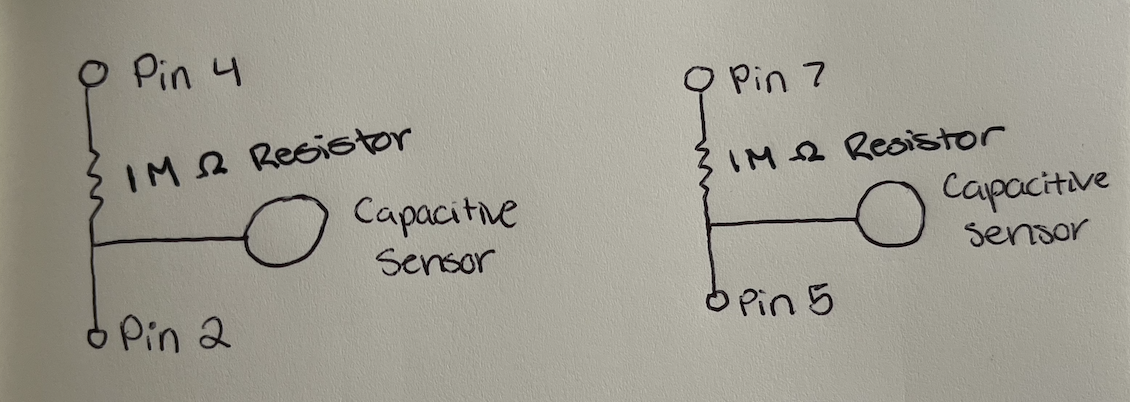 Pin 4
1M Ω Resistor
Capacitive
Sensor
Pin 2
Pin 7
1M Ω Resistor
Capacitive
sensor
Pin 5